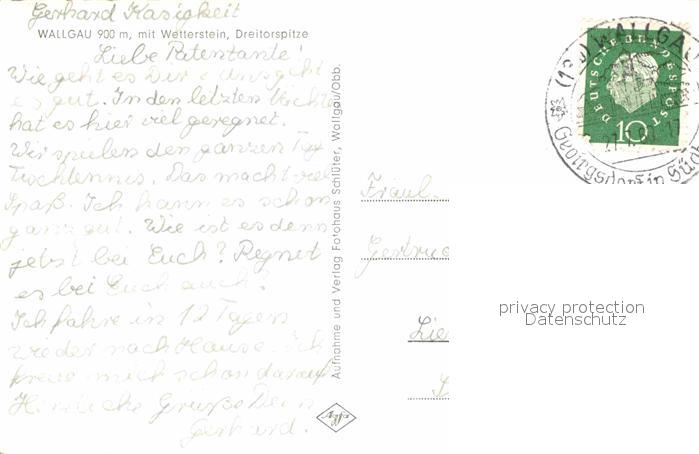 Gerhard Kasigkeit
WALLGAU 900 m, mit Wetterstein, Dreitorspitze
Liebe Patentante!
Wie geht es Dir? Uns geht
es gut. In den letzten
hat es hier viel geregnet.
Wir spielen den ganzen Tag
Tischtennis. Das macht viel
Spaß. Ich kann es schon
ganz gut. Wie ist es denn
jetzt bei Euch? Regnet
es bei Euch auch?
Ich fahre in 12 Tagen
wieder nach Hause. Ich
freue mich schon darauf
Herzliche Grüße Dein
Gerhard.
Aufnahme und Verlag Fotohaus Schlüter, Wallgau/Obb.
Agfa
DEUTSCHE BUNDESPOST
10
WALLGAU
Gebirgsdorf in
Fräul
Gertrud
privacy protection
Datenschutz